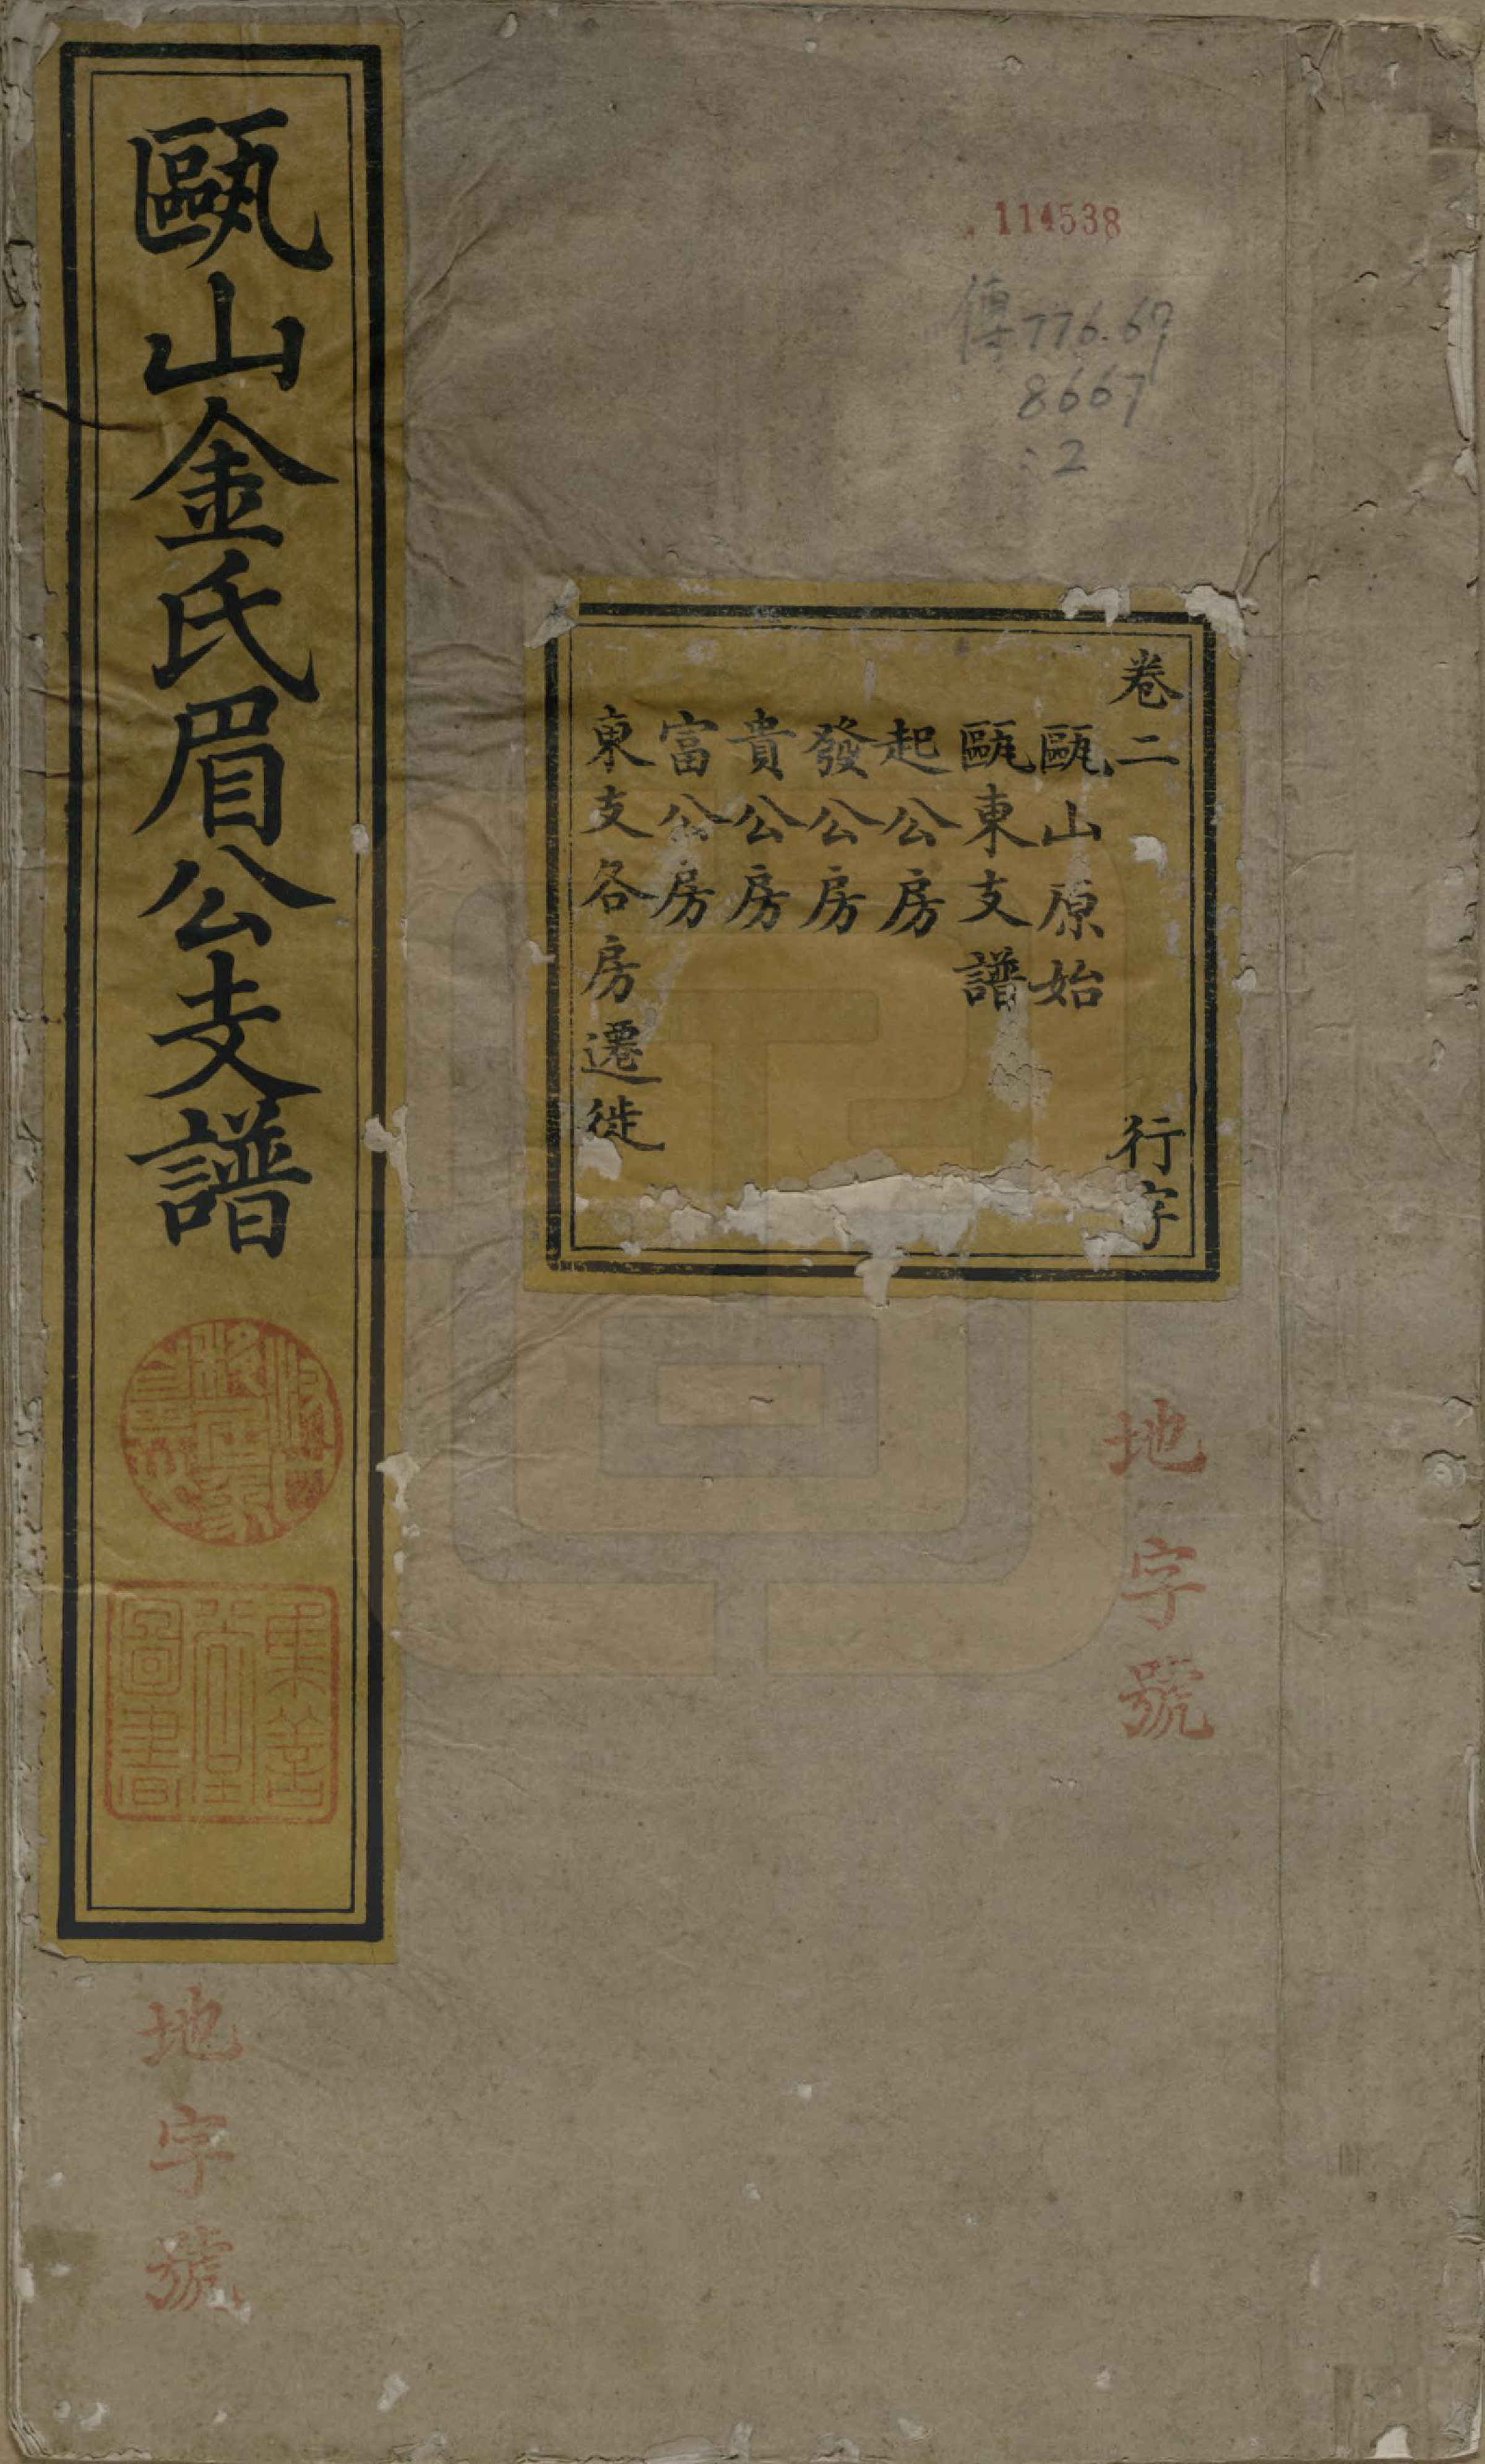 甌山金氏眉公支譜
114538
傳776.67
8667
:2
卷二 行字
甌山原始
甌東支譜
起公房
發公房
貴公房
富公房
東支各房遷徙
地字號
地字號